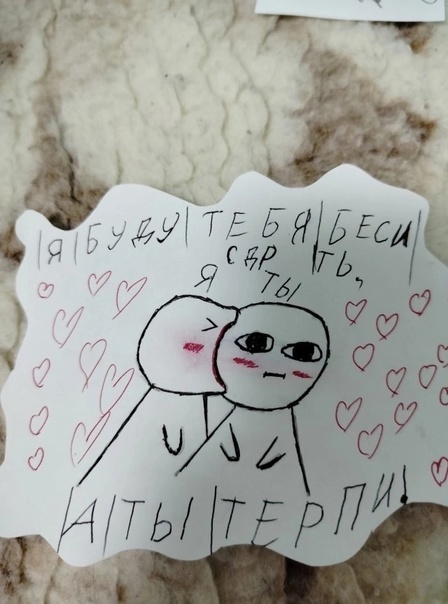 |Я|БУДУ|ТЕБЯ|БЕСИ|
ТЬ,
СДР
Я ТЫ
|А|ТЫ|ТЕРПИ!